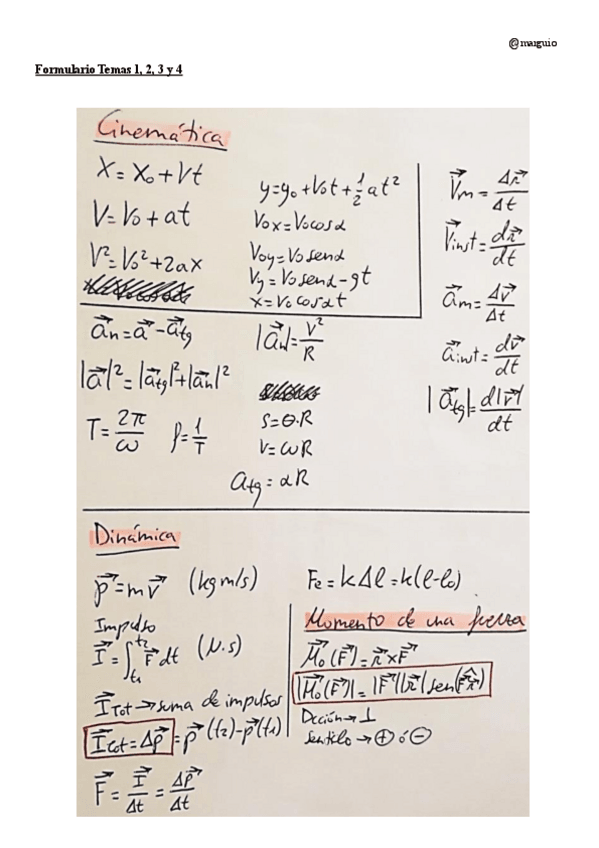 @maiguio
Formulario Temas 1, 2, 3 y 4
Cinemática
X = X₀ + Vt
V = V₀ + at
V² = V₀² + 2ax
y = y₀ + V₀t + 1/2 at²
V₀x = V₀cosα
V₀y = V₀ senα
Vy = V₀ senα - gt
x = V₀ cosαt
V⃗m = Δr⃗/Δt
V⃗inst = dr⃗/dt
a⃗m = Δv⃗/Δt
a⃗inst = dv⃗/dt
|a⃗tg| = d|v⃗|/dt
a⃗n = a⃗ - a⃗tg
|a⃗|² = |a⃗tg|² + |a⃗n|²
T = 2π/ω
f = 1/T
|a⃗n| = V²/R
S = θ·R
V = ωR
atg = αR
Dinámica
p⃗ = mv⃗ (kg m/s)
Impulso
I⃗ = ∫t₁t₂ F⃗ dt (N.s)
I⃗TOT → suma de impulsos
I⃗tot = Δp⃗ = p⃗(t₂) - p⃗(t₁)
F⃗ = I⃗/Δt = Δp⃗/Δt
Fe = kΔl = k(l-l₀)
Momento de una fuerza
M⃗o(F⃗) = r⃗ x F⃗
|M⃗o(F⃗)| = |F⃗||r⃗| sen(F⃗r⃗)
Dcción → ⊥
Sentido → ⊕ ó ⊖